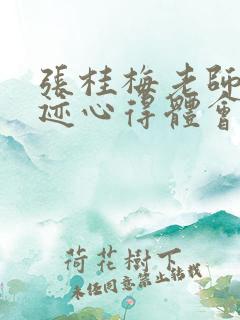 張桂梅老師
迹心得體會
荷花樹下
未經同意禁止轉載